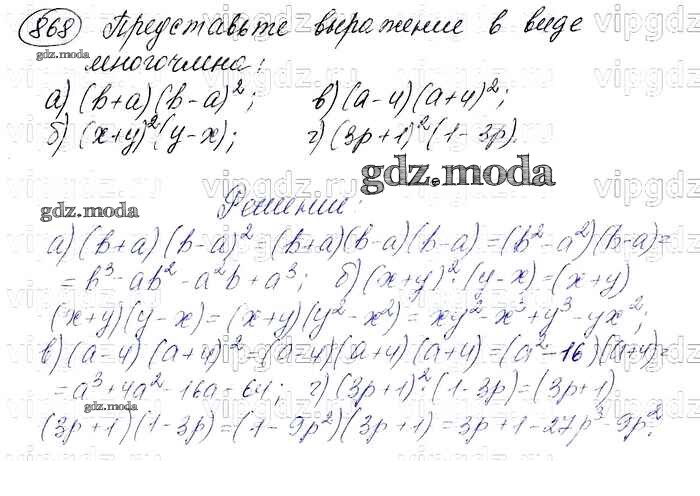 868 Представьте выражение в виде
многочлена:
а) (b+a)(b-a)²; в) (a-4)(a+4)²;
б) (x+y)²(y-x); г) (3p+1)²(1-3p).
gdz.moda
Решение:
gdz.moda
а) (b+a)(b-a)² = (b+a)(b-a)(b-a) = (b²-a²)(b-a) =
= b³-ab²-a²b+a³; б) (x+y)²·(y-x) = (x+y)
(x+y)(y-x) = (x+y)(y²-x²) = xy²-x³+y³-yx²;
в) (a-4)(a+4)² = (a-4)(a+4)(a+4) = (a²-16)(a+4) =
= a³+4a²-16a-64; г) (3p+1)²·(1-3p) = (3p+1)
gdz.moda
(3p+1)(1-3p) = (1-9p²)(3p+1) = 3p+1-27p³-9p².